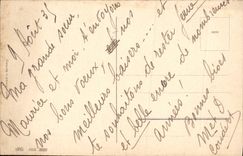 1 Août 31
Ma grande sœur,
Maurice et moi t'envoyons nos
nos bons vœux !
meilleurs baisers... et
te souhaitons de rester jeune
et belle encore de nombreuses
années ! Bonnes bises